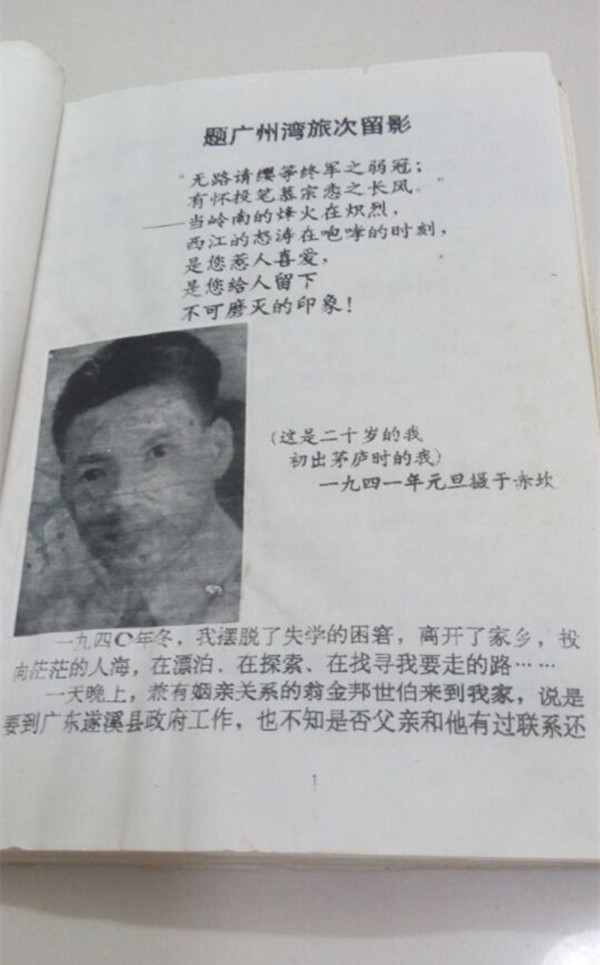 题广州湾旅次留影
“无路请缨等终军之弱冠；
有怀投笔慕宗悫之长风。”
——当岭南的烽火在炽烈，
西江的怒涛在咆哮的时刻，
是您惹人喜爱，
是您给人留下
不可磨灭的印象！
（这是二十岁的我
初出茅庐时的我）
一九四一年元旦摄于赤坎
一九四〇年冬，我摆脱了失学的困窘，离开了家乡，投
向茫茫的人海，在漂泊、在探索、在找寻我要走的路……
一天晚上，兼有姻亲关系的翁金邦世伯来到我家，说是
要到广东遂溪县政府工作，也不知是否父亲和他有过联系还
1